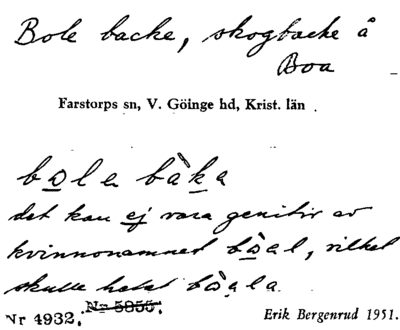 Bole backe, skogbacke å
Boa
Farstorps sn, V. Göinge hd, Krist. län
bo̲le bàk̲a
det kan ej vara genitiv av
kvinnonamnet bò̲el, vilket
skulle hetat bò̲ela.
Nr 4932. Nr 5855.
Erik Bergenrud 1951.